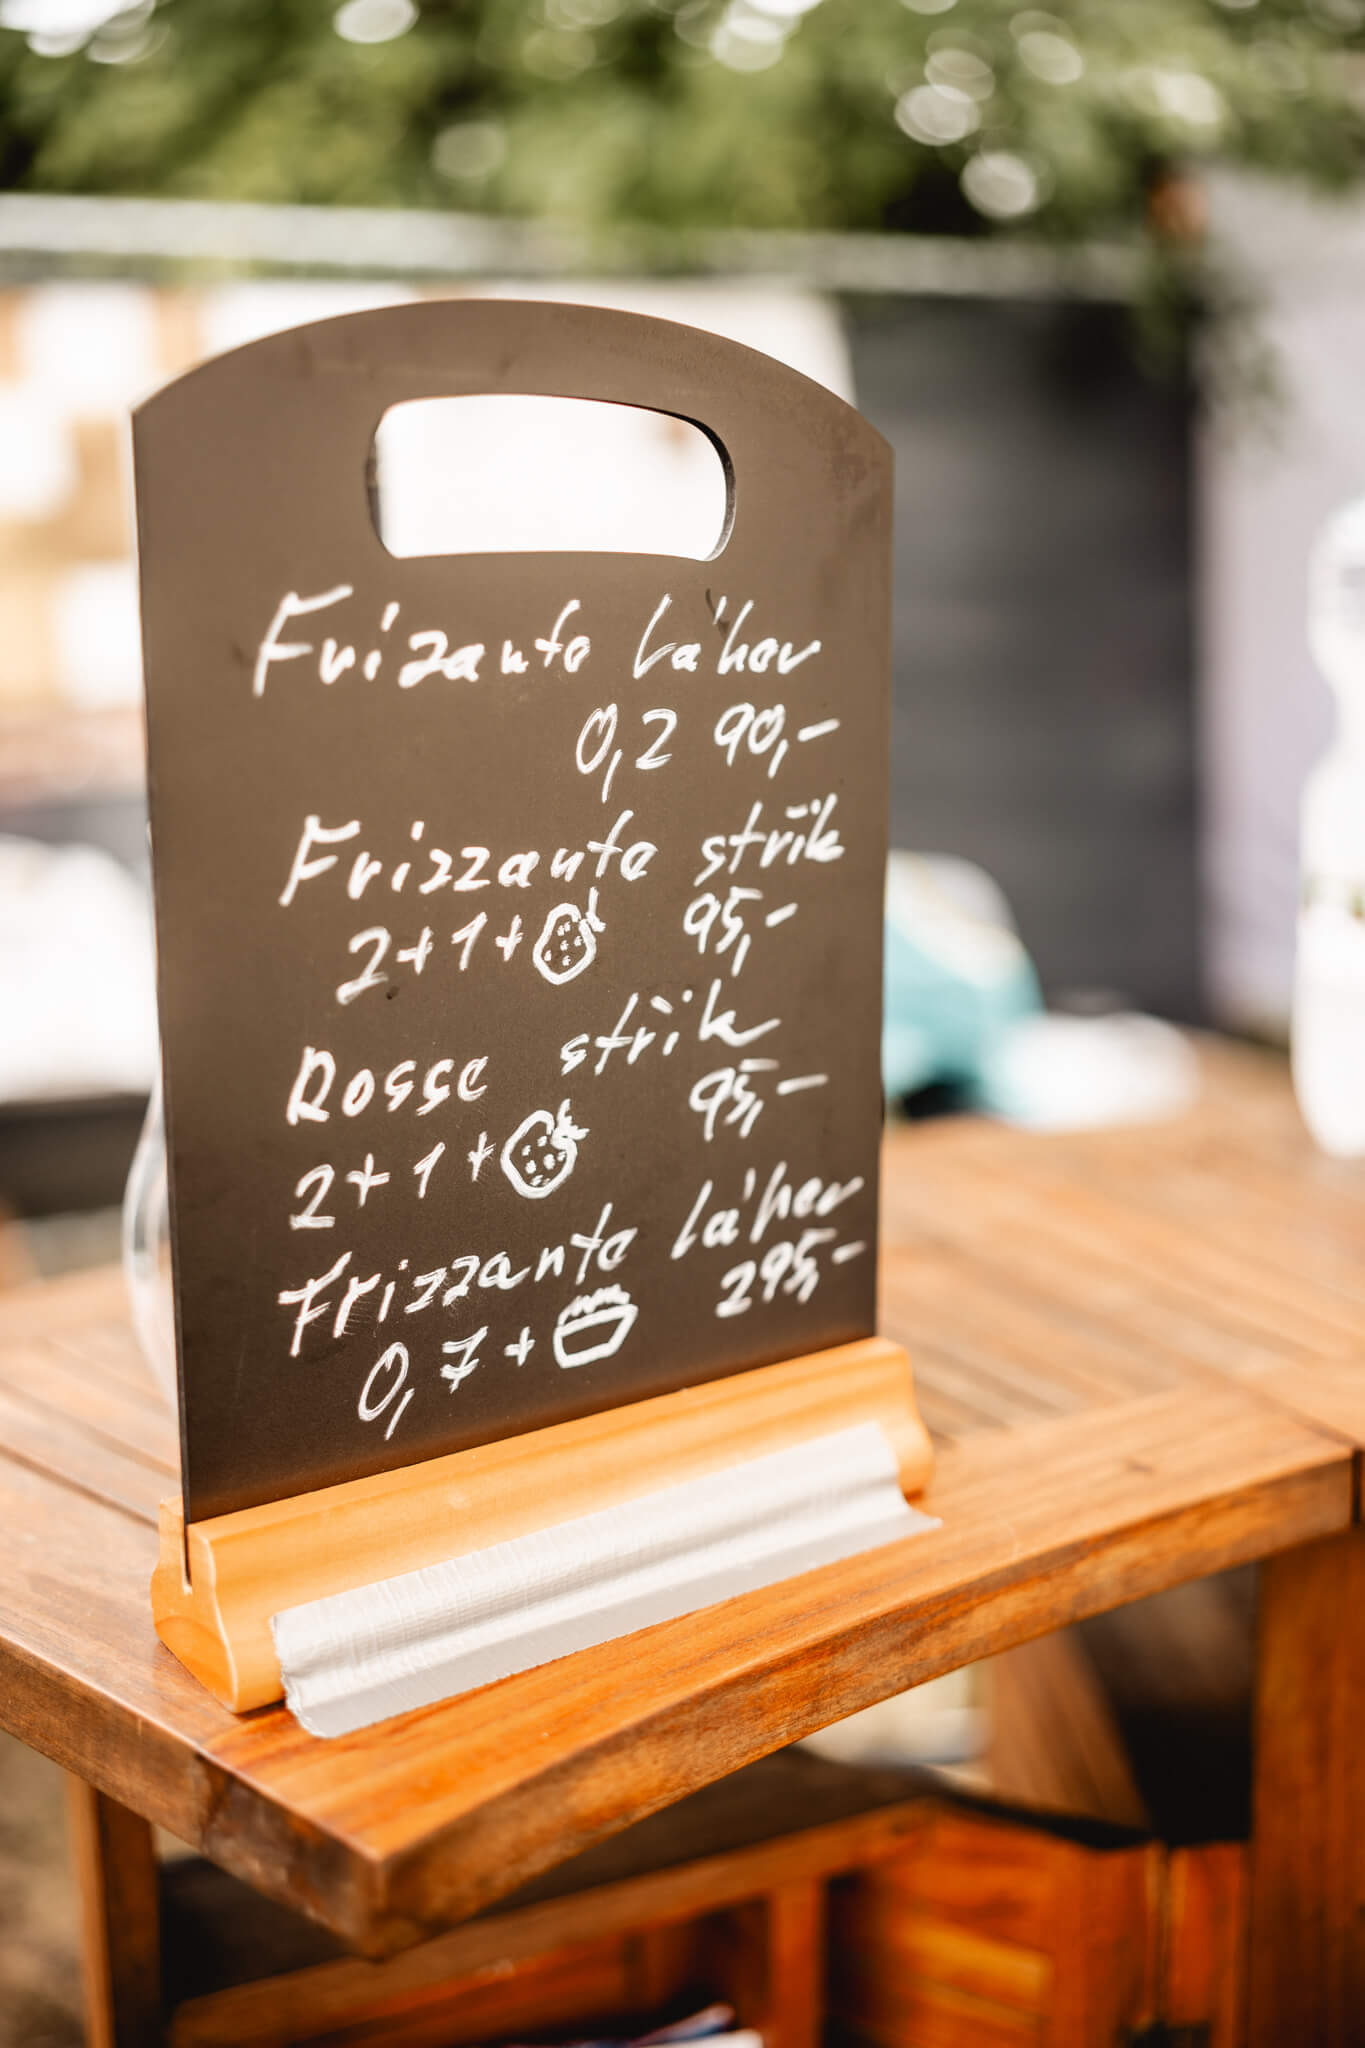 Frizante láhev
0,2 90,-
Frizzante střik
2+1+ 95,-
Rosse střik
2+1+ 95,-
Frizzante láhev
0,7+ 295,-